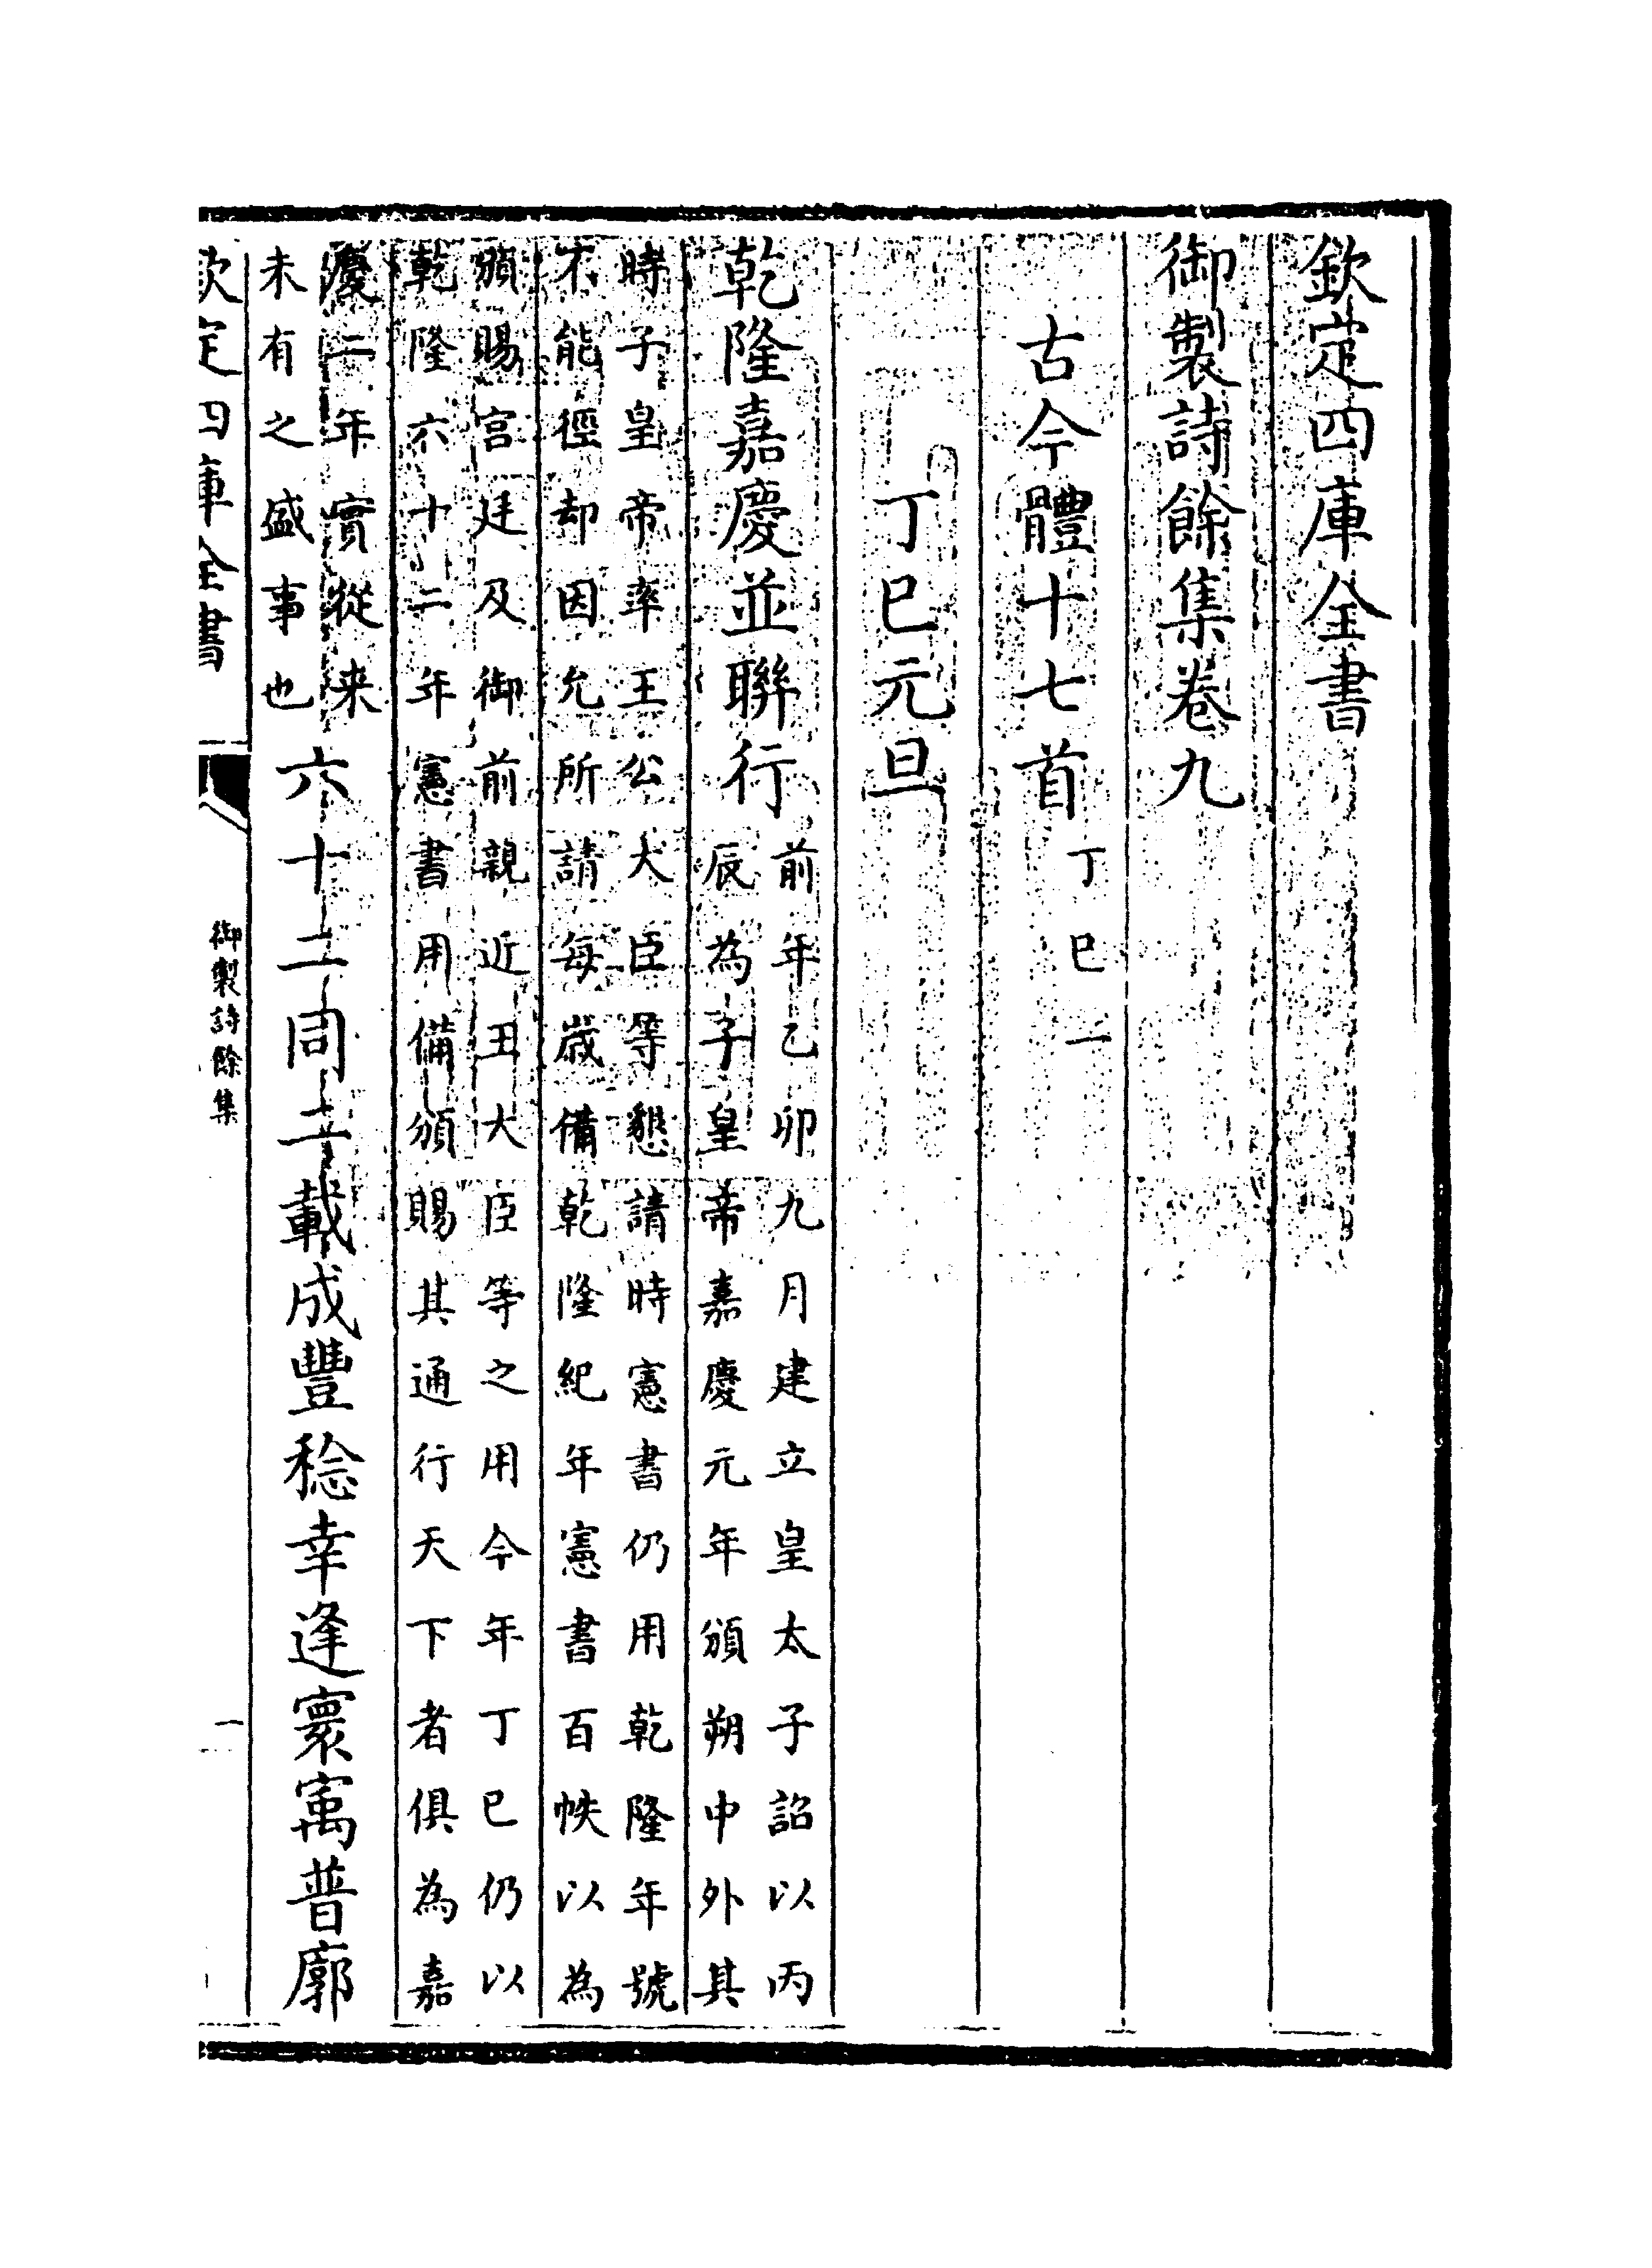 欽定四庫全書
御製詩餘集卷九
古今體十七首丁巳一
丁巳元旦
乾隆嘉慶並聯行前年乙卯九月建立皇太子詔以丙
辰為子皇帝嘉慶元年頒朔中外其
時子皇帝率王公大臣等懇請時憲書仍用乾隆年號
不能徑却因允所請每歲備乾隆紀年憲書百帙以為
頒賜宮廷及御前親近丑大臣等之用今年丁巳仍以
乾隆六十二年憲書用備頒賜其通行天下者俱為嘉
慶二年實從来
未有之盛事也六十二同二載成豐稔幸逢寰寓普廓
欽定四庫全書
御製詩餘集
一